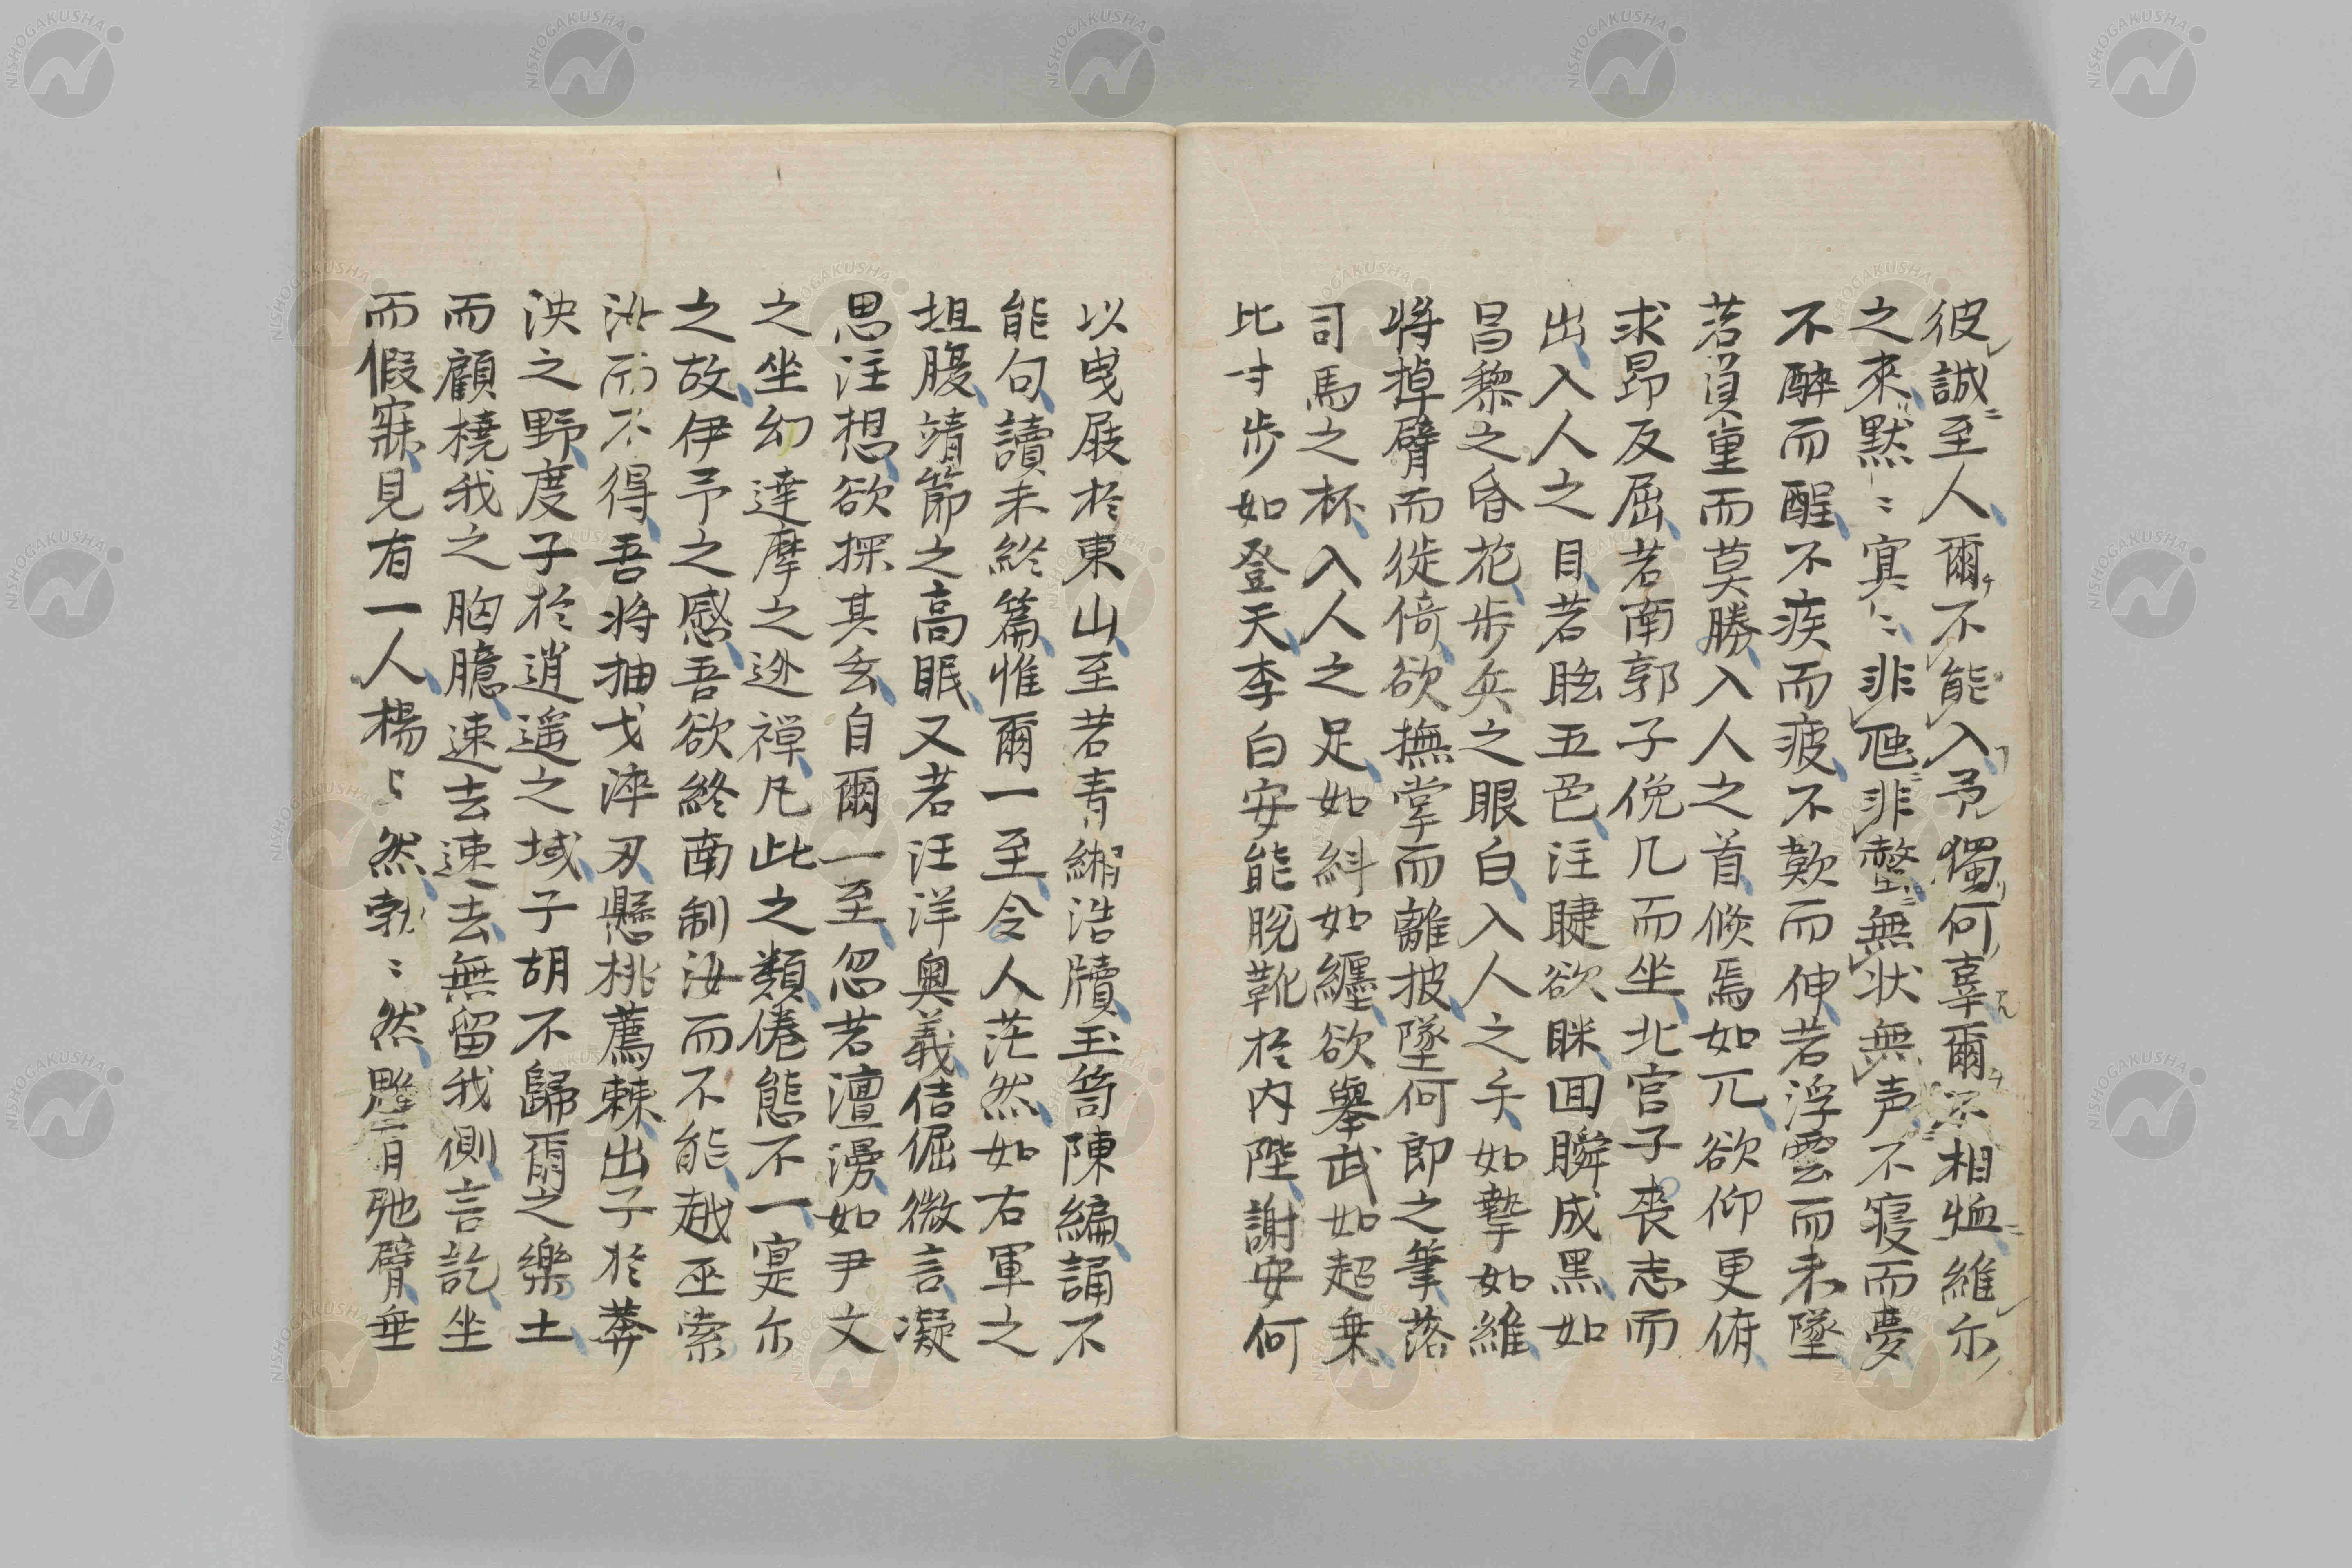 彼誠至人爾不能入予獨何辜爾不相恤維尓
之來黙〻寞〻非虺非螫無状無声不寝而夢
不醉而酲不疾而疲不歎而伸若浮雲而未墜
若負重而莫勝入人之首倐焉如兀欲仰更俯
求昂反屈若南郭子俛几而坐北宮子喪志而
出入人之目若眩五色注睫欲眯囬瞬成黑如
昌黎之昏花步兵之眼白入人之手如摯如維
将掉臂而徙倚欲撫掌而離披墜何郎之筆落
司馬之杯入人之足如紏如纒欲舉武如超乗
比寸步如登天李白安能脱靴於内陛謝安何
以曳屐於東山至若青緗浩牘玉笥陳編誦不
能句讀未終篇惟爾一至令人茫然如右軍之
坦腹靖節之高眠又若汪洋奥義佶倔微言凝
思注想欲探其玄自爾一至忽若澶漫如尹文
之坐幻達摩之逃禅凡此之類倦態不一寔尓
之故伊予之感吾欲終南制汝而不能越巫索
汝而不得吾将抽戈淬刃懸桃薦棘出子於莽
泱之野度子於逍遥之域子胡不歸爾之樂土
而顧橈我之胸臆速去速去無留我側言訖坐
而假寐見有一人楊〻然勃〻然豎肩弛臂垂